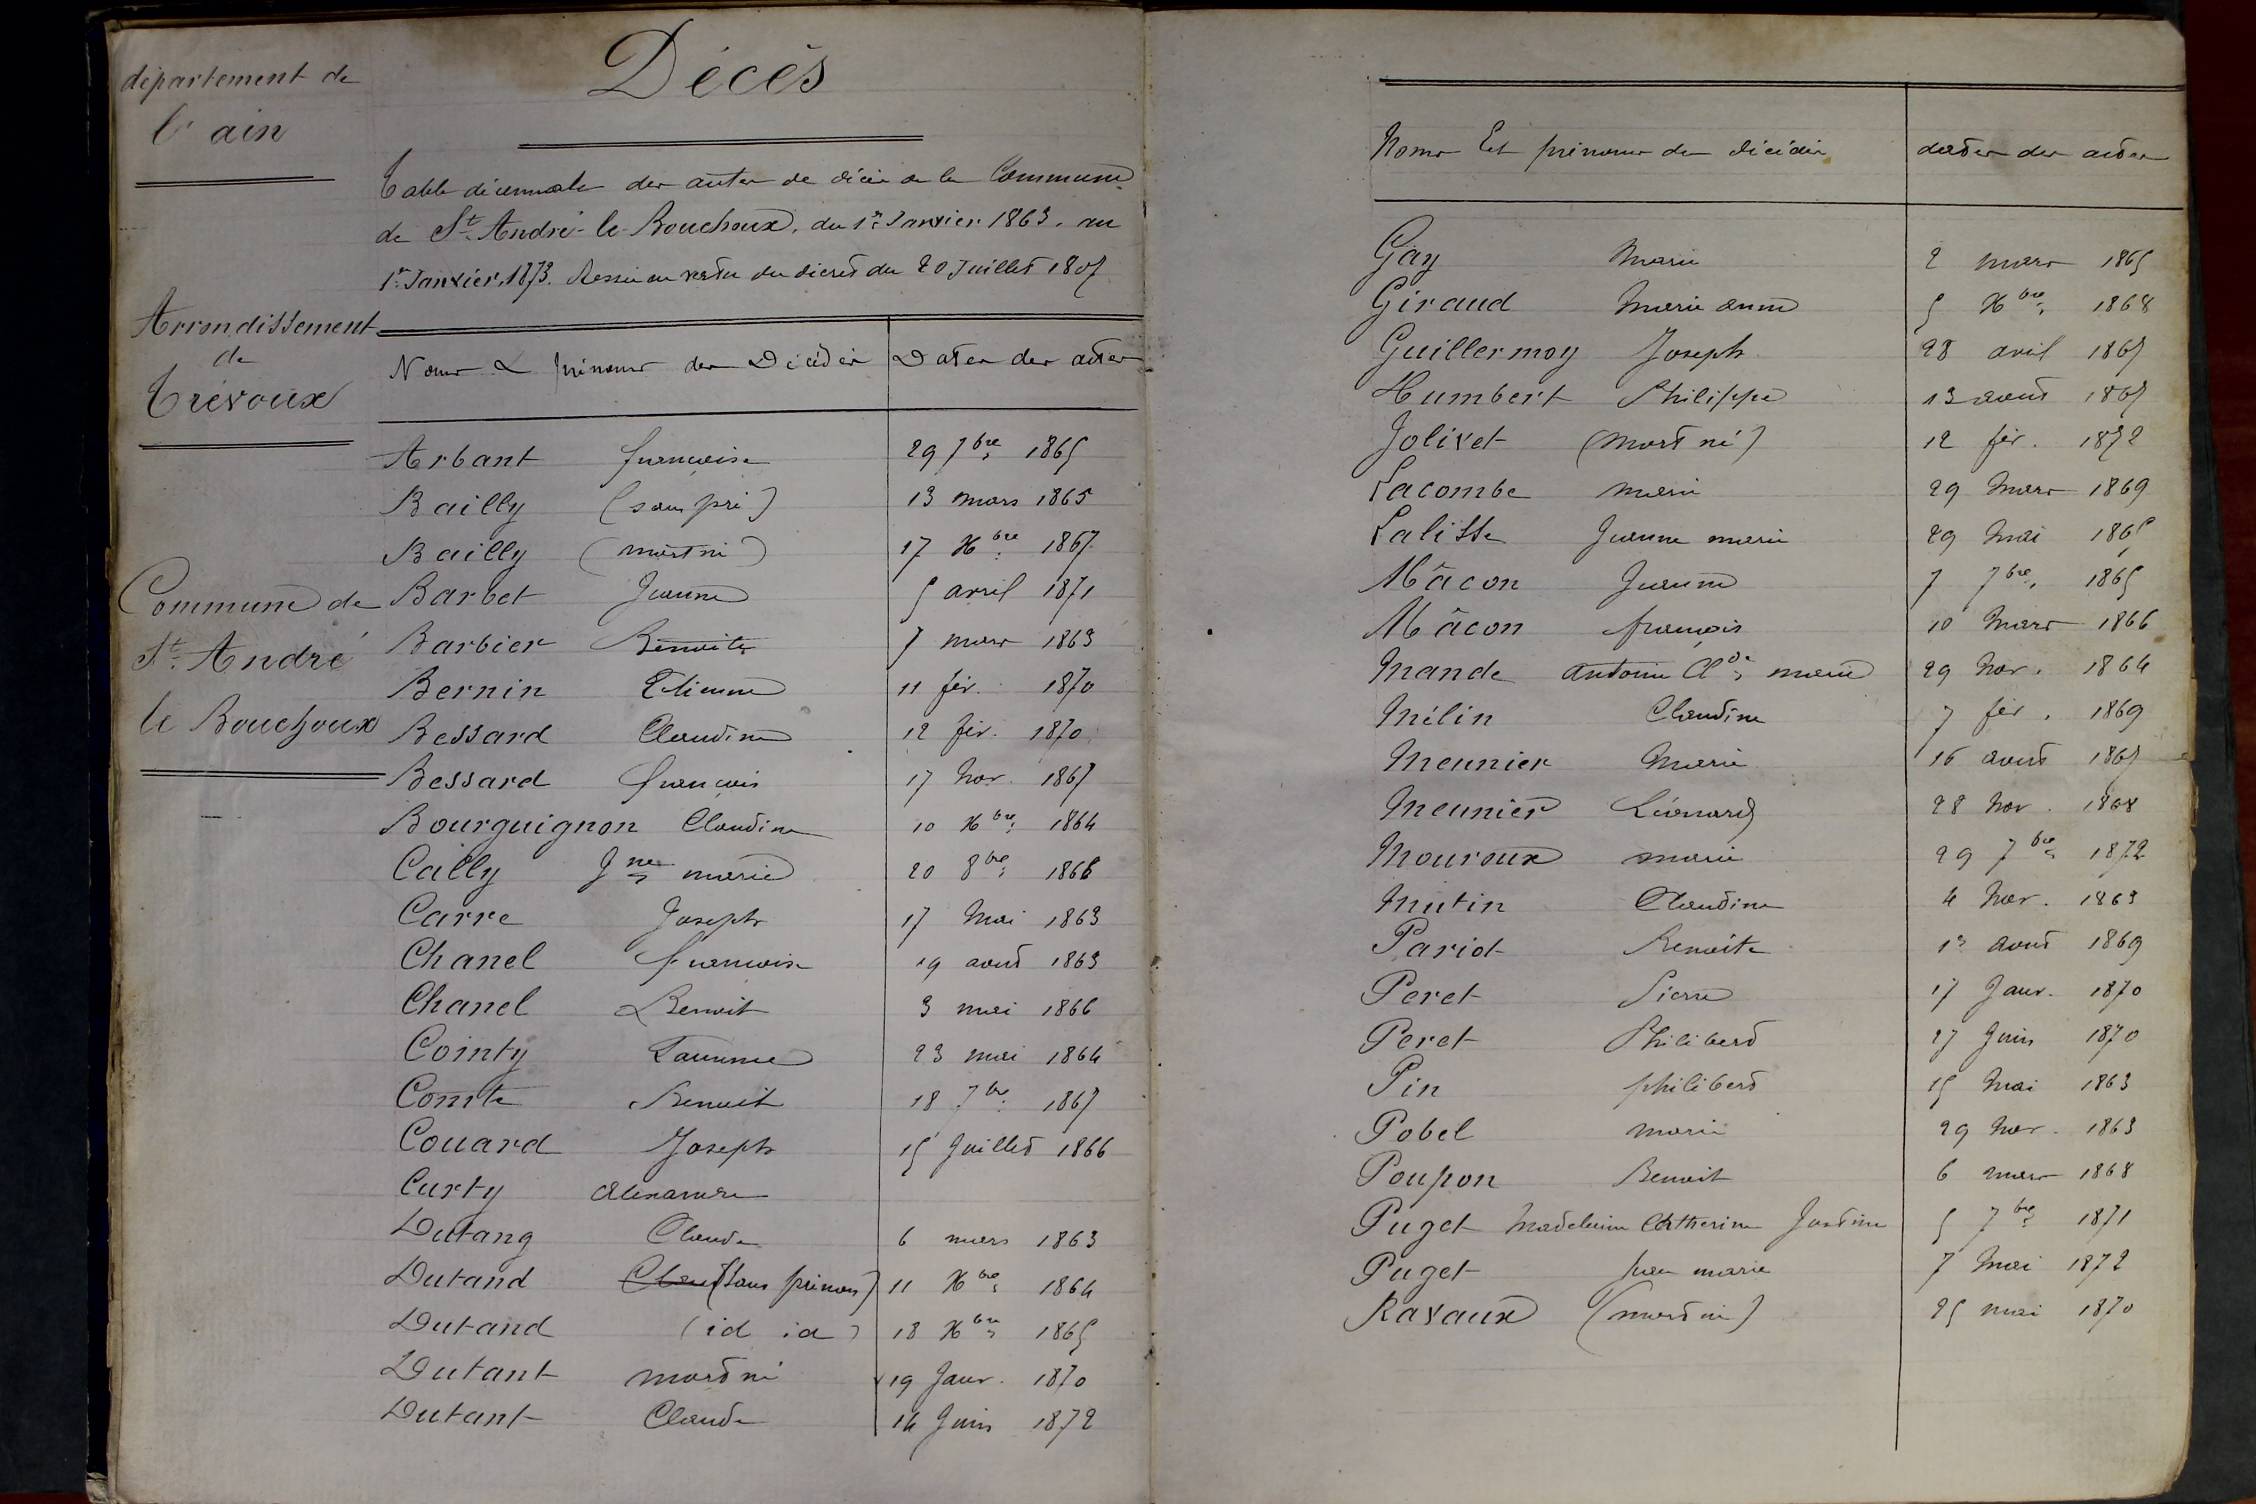 département de
l'ain
Arrondissement
de
Trévoux
Commune de
St. André
le Bouchoux
Décès
Table décennale des actes de décès de la Commune
de St. André-le-Bouchoux, du 1er Janvier 1863. au
1er Janvier 1873. en vertu du décret du 20 Juillet 1807
Noms & prénoms des Décédés Dates des actes
Arbant françoise 29 7bre 1865
Bailly (sans pré) 13 mars 1865
Bailly (mort né) 17 Xbre 1867
Barbet Jeanne 5 avril 1871
Barbier Benoite 7 mars 1863
Bernin Etienne 11 fév. 1870
Bessard Claudine 12 fév. 1870
Bessard françois 17 nov. 1867
Bourguignon Claudine 10 Xbre 1864
Cailly Jne marie 20 8bre 1868
Carre Joseph 17 mai 1863
Chanel françoise 19 aout 1863
Chanel Benoit 3 mai 1866
Cointy 23 mai 1864
Comte Benoit 18 7bre 1867
Couard Joseph 15 Juillet 1866
Curty Alexandre
Dutang Claude 6 mars 1863
Dutand (sans prénoms) 11 Xbre 1864
Dutand (id id) 18 Xbre 1865
Dutant mort né 19 Janv. 1870
Dutant Claude 14 Juin 1872
Noms Et prénoms des décédés dates des actes
Gay Marie 2 mars 1865
Giraud Marie anne 5 Xbre 1868
Guillermoy Joseph 28 avril 1867
Humbert Philippe 13 aout 1867
Jolivet (mort né) 12 fév. 1872
Lacombe marie 29 Mars 1869
Lalisse Jeanne marie 29 Mai 1865
Mâcon Jeanne 7 7bre 1865
Mâcon françois 10 Mars 1866
Mande Antoine Cde marie 29 Nov. 1864
Mélin Claudine 7 fév. 1869
Meunier Marie 16 aout 1867
Meunier Léonard 28 Nov. 1868
Mouroux marie 29 7bre 1872
Mutin Claudine 4 Nov. 1863
Pariot Benoite 13 aout 1869
Peret Pierre 17 Janv. 1870
Peret Philibert 27 Juin 1870
Pin philibert 15 Mai 1863
Pobel marie 29 Nov. 1863
Poupon Benoit 6 mars 1868
Puget Madeleine Catherine Justine 5 7bre 1871
Puget Jean marie 7 Mai 1872
Ravaux (mort né) 25 mai 1870